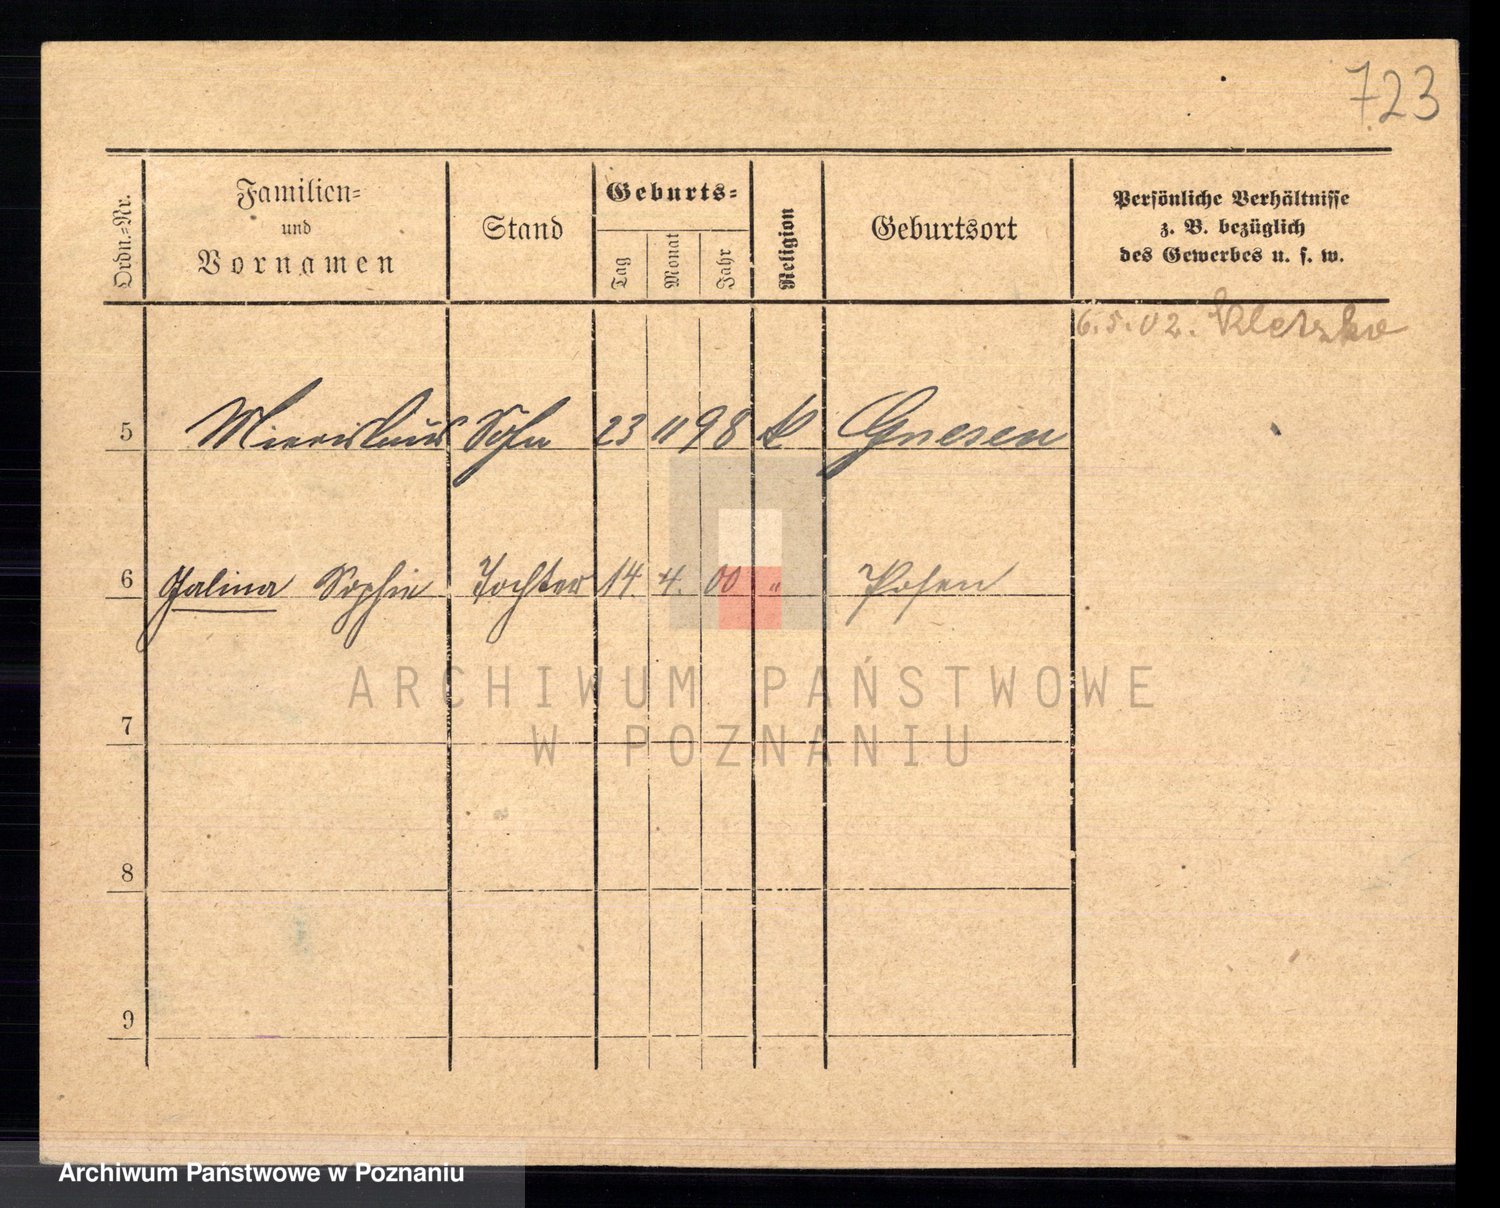 723
Ordn.-Nr.
Familien-
und
Vornamen
Stand
Geburts-
Tag
Monat
Jahr
Religion
Geburtsort
Persönliche Verhältnisse
z. B. bezüglich
des Gewerbes u. s. w.
6.5.02. Kletzko
5 Sohn 23 11 98 k Gnesen
6 Halina Sophie Tochter 14. 4. 00 " Posen
7
8
9
ARCHIWUM PAŃSTWOWE
W POZNANIU
Archiwum Państwowe w Poznaniu